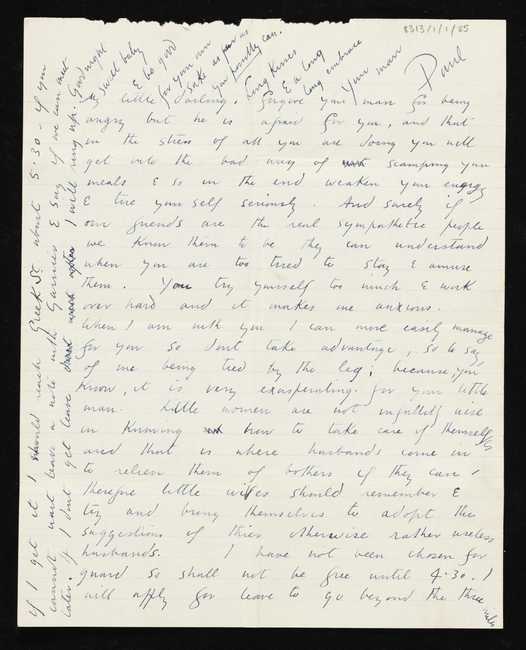 8313/1/1/85
My little darling. Forgive your man for being
angry but he is afraid for you, and that
in the stress of all you are doing you will
get into the bad way of scamping your
meals & so in the end weaken your energy
& tire yourself seriously. And surely if
our friends are the real sympathetic people
we know them to be they can understand
when you are too tired to stay & amuse
them. You try yourself too much & work
over hard and it makes me anxious.
When I am with you I can more easily manage
for you so dont take advantage, so to say,
of me being tied by the leg; because, you
know, it is very exasperating for your little
man. Little women are not infallibly wise
in knowing how to take care of themselves
and that is where husbands come in
to relieve them of bothers if they can,
therefore little wives should remember &
try and bring themselves to adopt the
suggestions of their otherwise rather useless
husbands. I have not been chosen for
guard so shall not be free until 4.30. I
will apply for leave to go beyond the three
mile
if I get it I should reach Greek St about 5.30 - if you
cannot wait leave a note with Garnier & say if we can meet
later. If I dont get leave I will ring up. Goodnight
Sweet baby
& be good
for your own
sake as far as
you possibly can.
Long kisses
& a long
long embrace
Your man
Paul